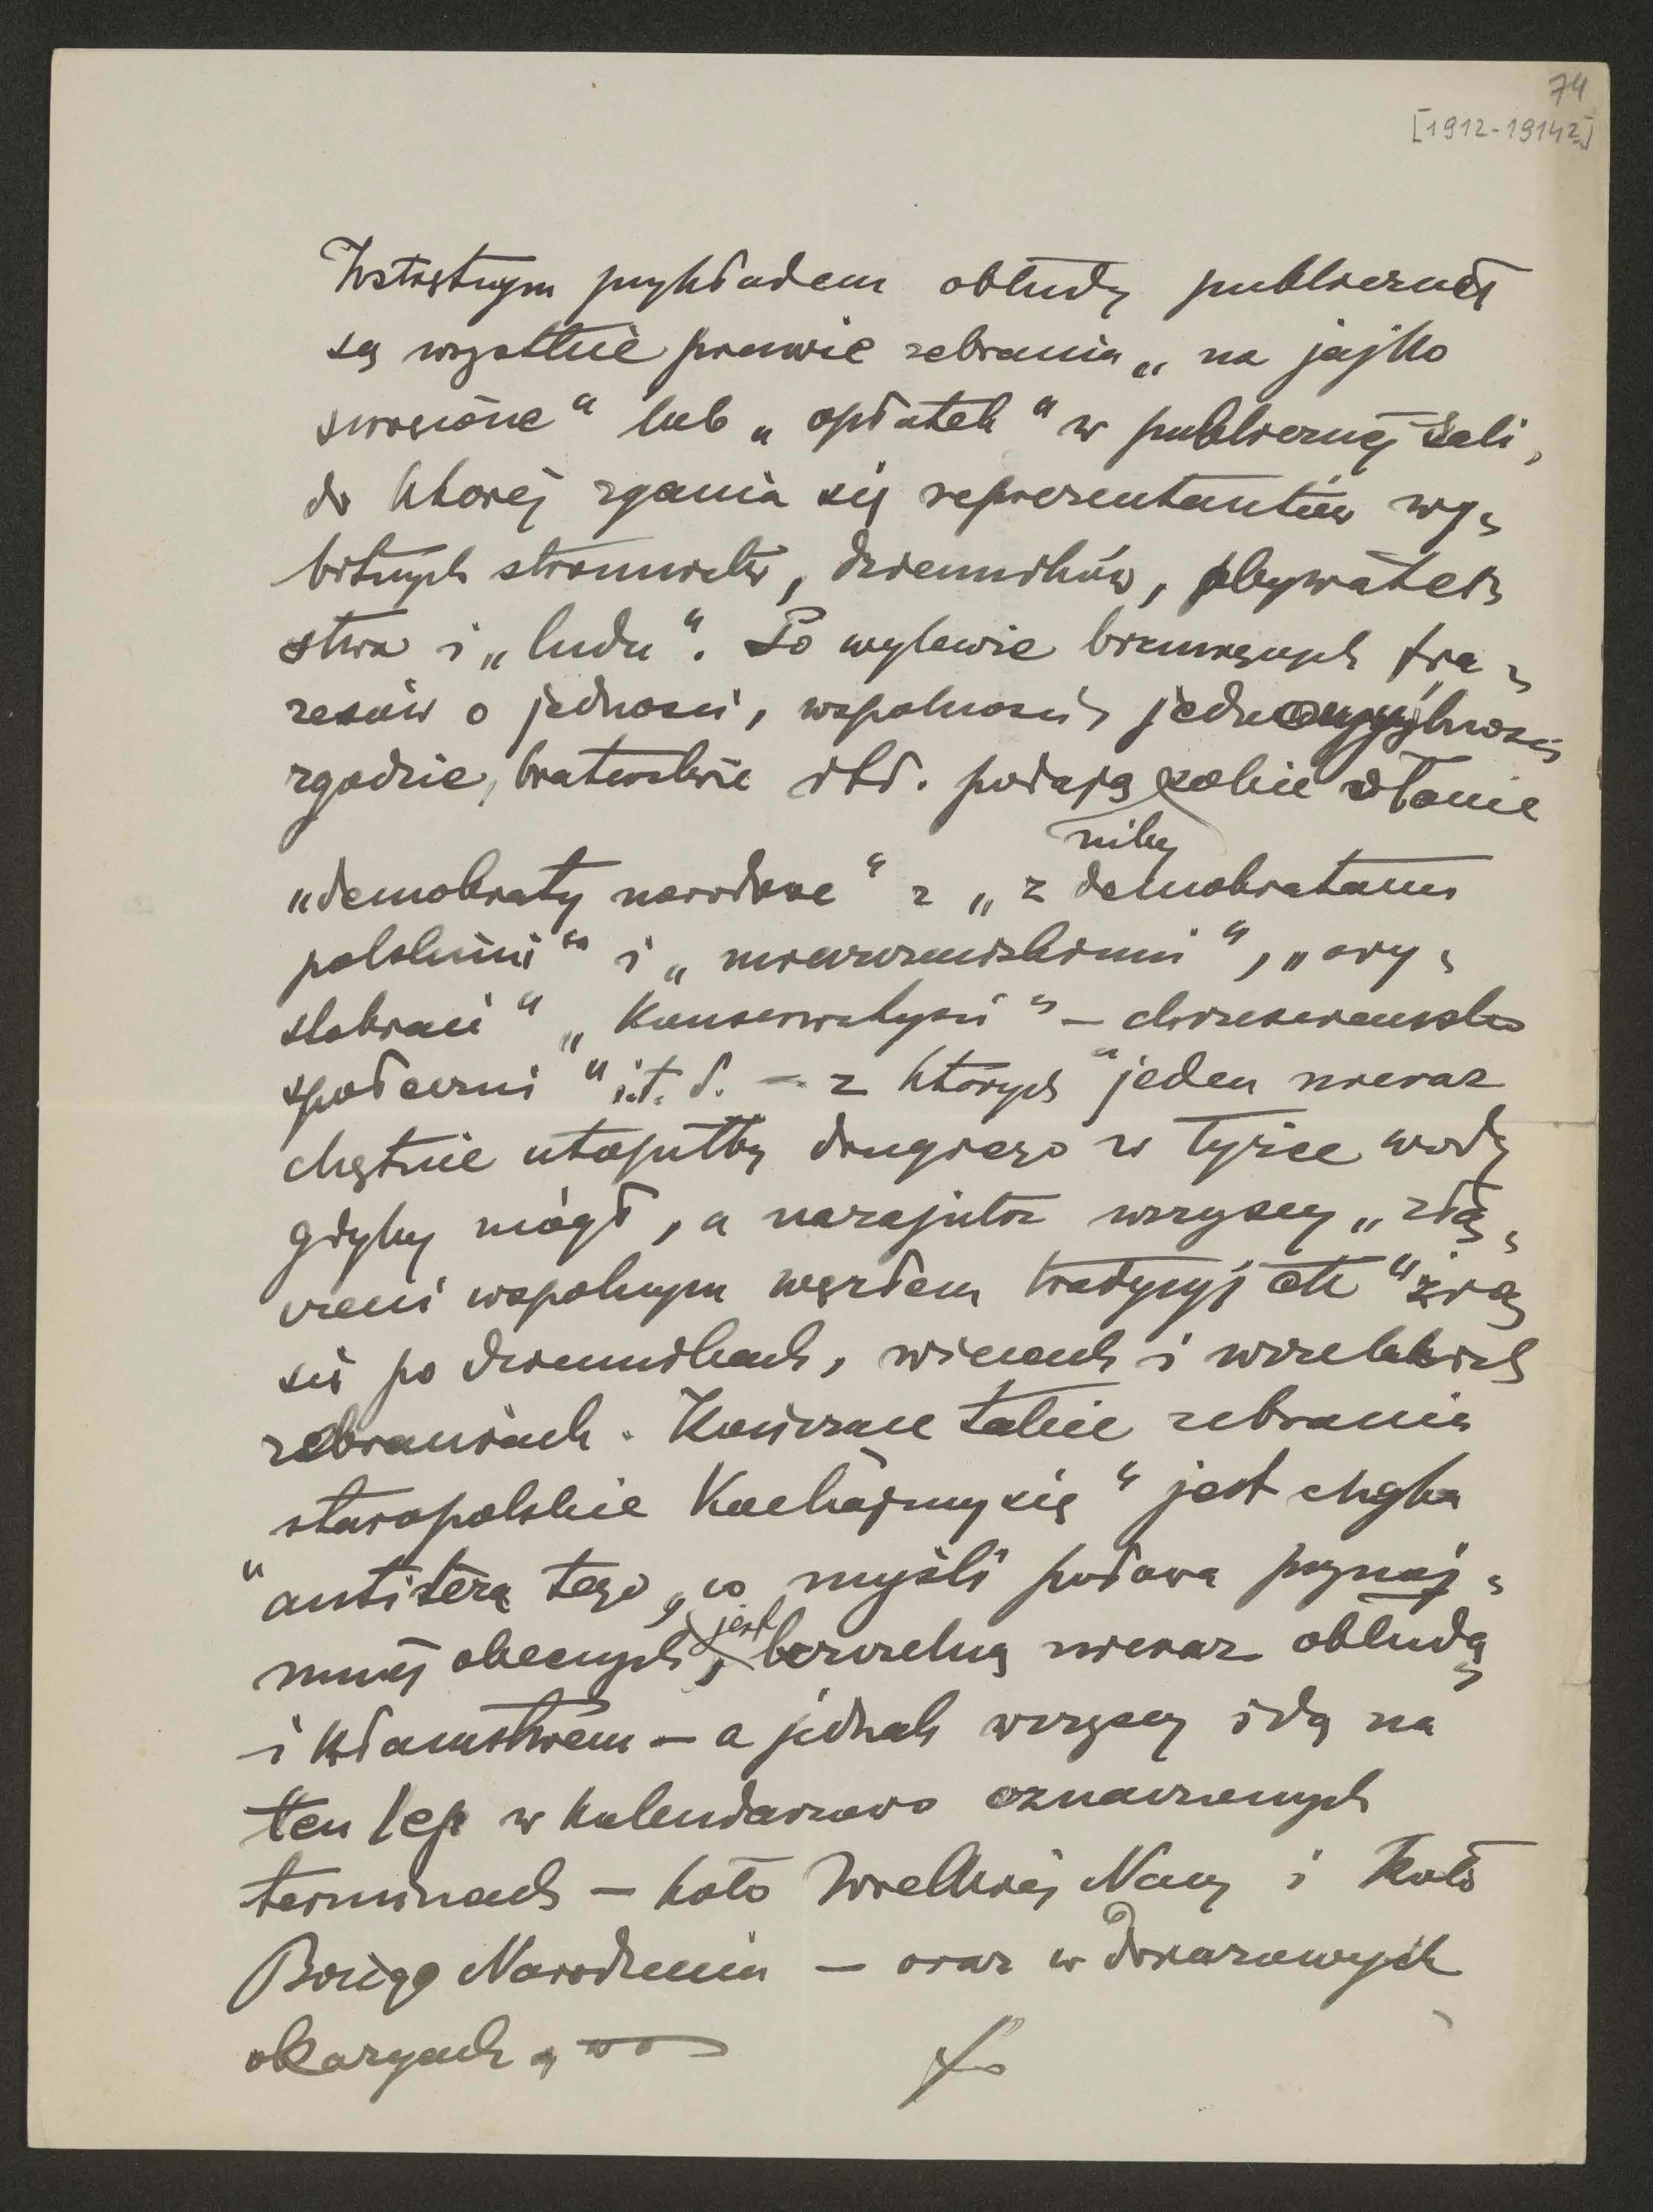 74
[1912-1914?]
Wstrętnym przykładem obłudy publicznej
są wszystkie prawie zebrania „na jajko
święcone" lub „opłatek" w publicznej sali,
do ktorej zgania się reprezentantów wy-
bitnych stronnictw, dzienników, obywatel-
stwa i „ludu". Po wylewie brzmiących fra-
zesów o jedności, wspolności, jednomyślności
zgodzie, braterstwie itd. podają sobie dłonie
niby
„demokraty narodowe" z „z demokratami
polskimi" i „mieszczańskimi", „ary-
stokraci" „Konserwatyści" – chrześciansko
społeczni" i.t.d. – z których jeden nieraz
chętnie utopiłby drugiego w łyżce wody
gdyby mógł, a nazajutrz wszyscy „złą-
czeni wspolnym węzłem tradycyj etc" żrą
się po dziennikach, wiecach i wszelakich
zebraniach. Kończące takie zebrania
„staropolskie Kochajmy się" jest chyba
antitezą tego, co myśli połowa przynaj-
mniej obecnych, jest bezczelną nieraz obłudą
i kłamstwem – a jednak wszyscy idą na
ten lep w kalendarzowo oznaczonych
terminach – koło Wielkiej Nocy i koło
Bożego Narodzenia – oraz w doraznych
okazyach